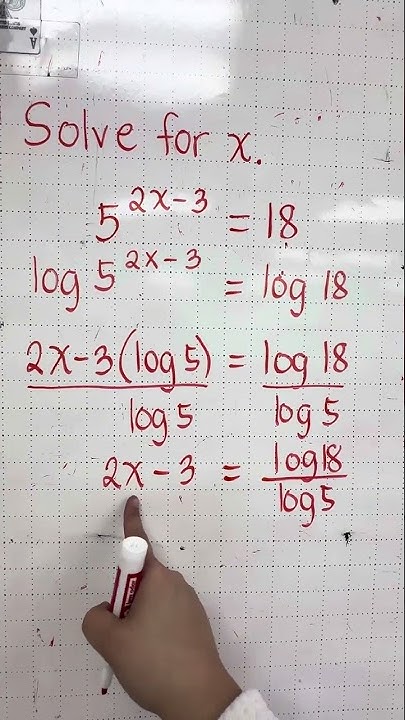 Solve for x.
5^(2x-3) = 18
log 5^(2x-3) = log 18
2x-3(log 5) / log 5 = log 18 / log 5
2x - 3 = log 18 / log 5